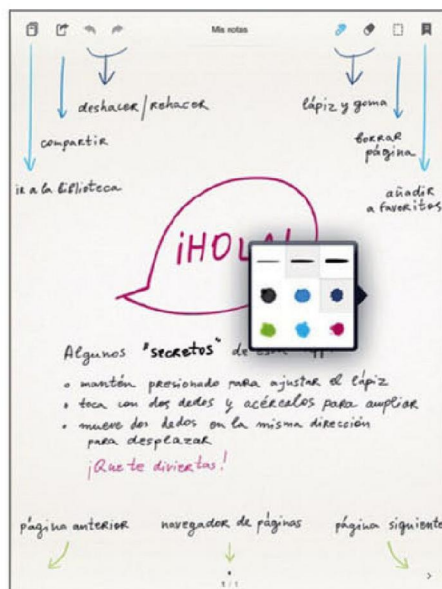 Mis notas
deshacer/rehacer
lápiz y goma
compartir
borrar
página
ir a la biblioteca
añadir
a favoritos
¡HOLA!
Algunos "secretos" de
• mantén presionado para ajustar el lápiz
• toca con dos dedos y acércalos para ampliar
• mueve dos dedos en la misma dirección
para desplazar
¡Que te diviertas!
página anterior
navegador de páginas
página siguiente
1 / 1